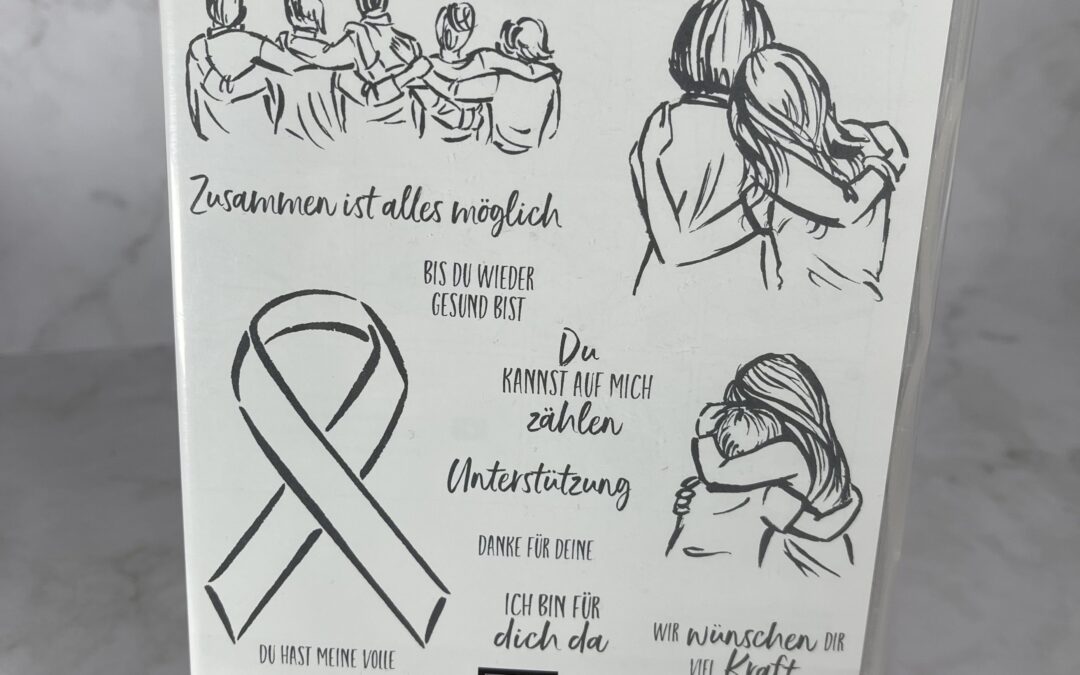 Zusammen ist alles möglich
BIS DU WIEDER
GESUND BIST
Du
KANNST AUF MICH
zählen
Unterstützung
DANKE FÜR DEINE
ICH BIN FÜR
dich da
DU HAST MEINE VOLLE
WIR wünschen DIR
VIEL Kraft